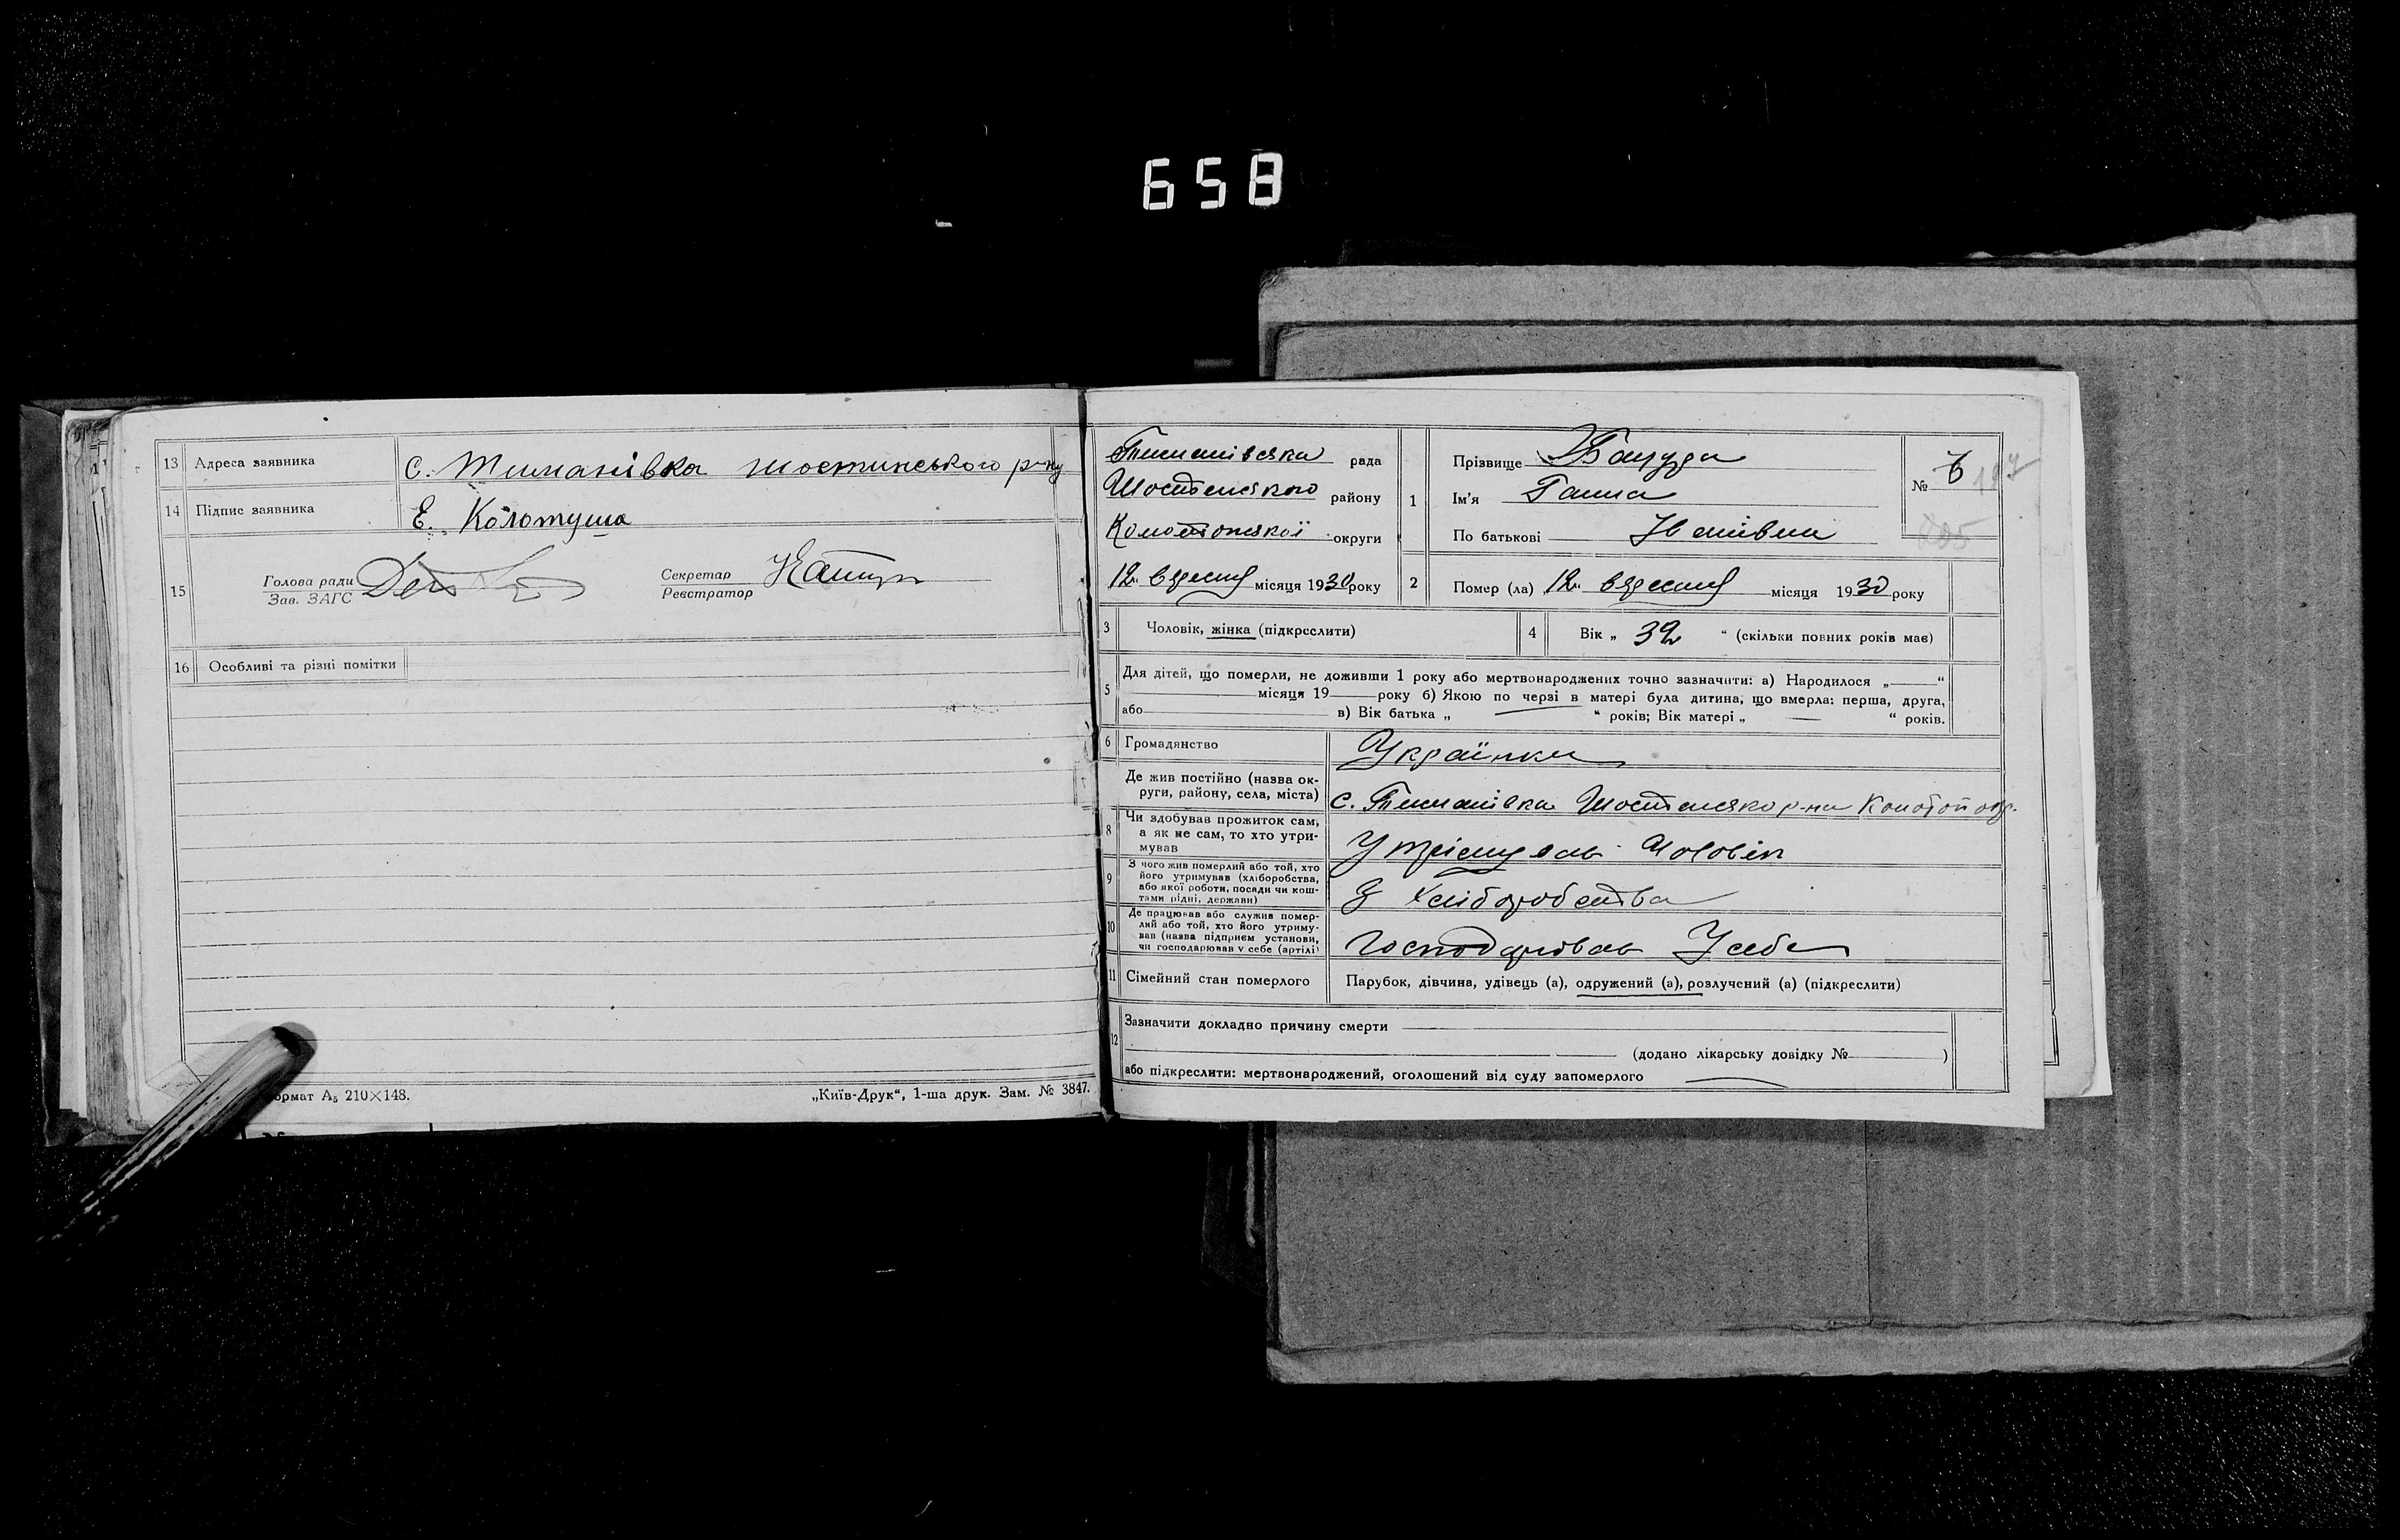 658
13 Адреса заявника с. Тиманівка Шостинського р-ну
14 Підпис заявника Е. Колотуша
15 Голова ради
Зав. ЗАГС
Секретар
Реєстратор
16 Особливі та різні помітки
формат А₅ 210×148.
„Київ-Друк“, 1-ша друк. Зам. № 3847.
Тиманівська рада
Шостенского району
Конотопської округи
12 вересня місяця 1930 року
1 Прізвище
Ім'я Ганна
По батькові Іванівна
№ 6
2 Помер (ла) 12 вересня місяця 1930 року
3 Чоловік, жінка (підкреслити)
4 Вік „ 32 “ (скільки повних років має)
5 Для дітей, що померли, не доживши 1 року або мертвонароджених точно зазначити: а) Народилося „—“
місяця 19— року б) Якою по черзі в матері була дитина, що вмерла: перша, друга,
або — в) Вік батька „ — “ років; Вік матері „ — “ років.
6 Громадянство Українка
Де жив постійно (назва ок-
руги, району, села, міста)
с. Тиманівка Шостенско р-на Конотоп окр.
8 Чи здобував прожиток сам,
а як не сам, то хто утри-
мував
Утрімував Чоловік
9 З чого жив померлий або той, хто
його утримував (хліборобства,
або якої роботи, посади чи кош-
тами рідні, держави)
З Хліборобства
10 Де працював або служив помер-
лий або той, хто його утриму-
вав (назва підприєм установи,
чи господарював у себе (артілі)
Господарював У себе
11 Сімейний стан померлого Парубок, дівчина, удівець (а), одружений (а), розлучений (а) (підкреслити)
12 Зазначити докладно причину смерти
(додано лікарську довідку № — )
або підкреслити: мертвонароджений, оголошений від суду запомерлого